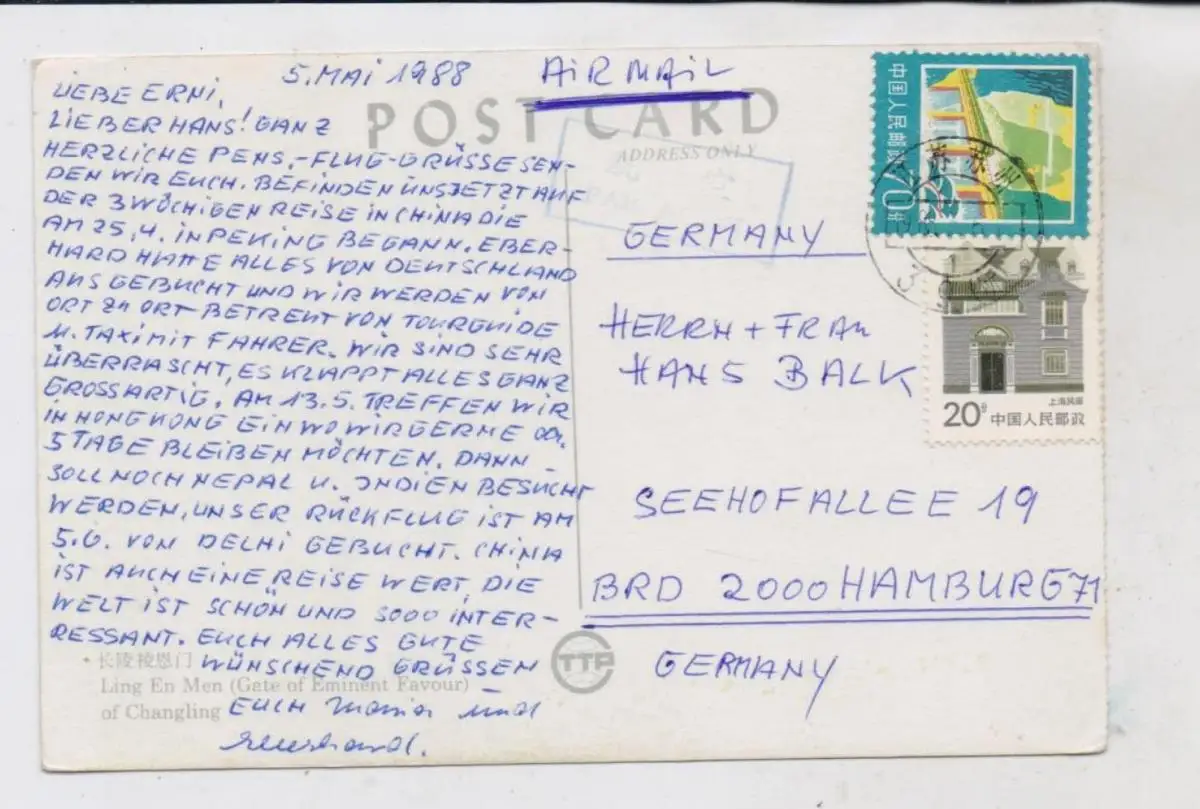 5. MAI 1988
LIEBE ERNI,
LIEBER HANS! GANZ
HERZLICHE PENS.-FLUG-GRÜSSE SEN-
DEN WIR EUCH. BEFINDEN UNS JETZT AUF
DER 3 WÖCHIGEN REISE IN CHINA DIE
AM 25.4. IN PEKING BEGANN. EBER-
HARD HATTE ALLES VON DEUTSCHLAND
AUS GEBUCHT UND WIR WERDEN VON
ORT ZU ORT BETREUT VON TOURGUIDE
U. TAXI MIT FAHRER. WIR SIND SEHR
ÜBERRASCHT, ES KLAPPT ALLES GANZ
GROSSARTIG. AM 13.5. TREFFEN WIR
IN HONGKONG EIN WO WIR GERNE CA.
5 TAGE BLEIBEN MÖCHTEN. DANN
SOLL NOCH NEPAL U. INDIEN BESUCHT
WERDEN, UNSER RÜCKFLUG IST AM
5.6. VON DELHI GEBUCHT. CHINA
IST AUCH EINE REISE WERT, DIE
WELT IST SCHÖN UND SOOO INTER-
RESSANT. EUCH ALLES GUTE
WÜNSCHEND GRÜSSEN
EUCH Maria und
Eberhard.
长陵祾恩门
Ling En Men (Gate of Eminent Favour)
of Changling
AIRMAIL
POST CARD
ADDRESS ONLY
GERMANY
HERRN + FRAU
HANS BALK
SEEHOFALLEE 19
BRD 2000 HAMBURG 71
GERMANY
TTP
中国人民邮政
70分
上海民居
20分 中国人民邮政